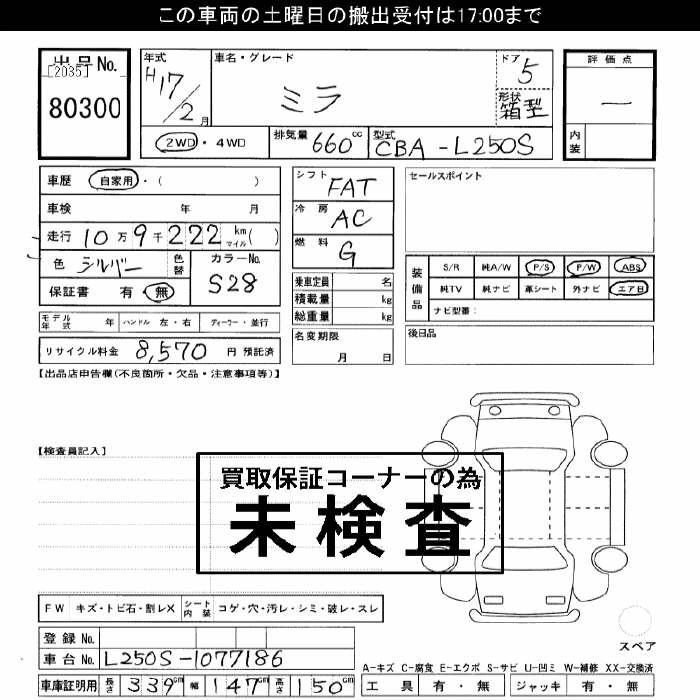 この車両の土曜日の搬出受付は17:00まで
出品No.
[2035]
80300
年式
H17/2月
車名・グレード
ミラ
ドア
5
形状
箱型
2WD・4WD
排気量 660cc
型式 CBA-L250S
評価点
一
内装
車歴 自家用・( )
車検 年 月
走行 10万9千222km マイル( )
色 シルバー 色替 カラーNo. S28
保証書 有・無
モデル年式 年 ハンドル 左・右 ディーラー・並行
リサイクル料金 8,570円 預託済
シフト FAT
冷房 AC
燃料 G
乗車定員 名
積載量 kg
総重量 kg
名変期限
月 日
セールスポイント
装備品
S/R 純A/W P/S P/W ABS
純TV 純ナビ 革シート 外ナビ エアB
ナビ型番:
後日品
【出品店申告欄(不良箇所・欠品・注意事項等)】
【検査員記入】
買取保証コーナーの為
未検査
FW キズ・トビ石・割レX シート内装 コゲ・穴・汚レ・シミ・破レ・スレ
登録No.
車台No. L250S-1077186
車庫証明用 長さ 339cm 幅 147cm 高さ 150cm
スペア
A-キズ C-腐食 E-エクボ S-サビ U-凹ミ W-補修 XX-交換済
工具 有・無 ジャッキ 有・無